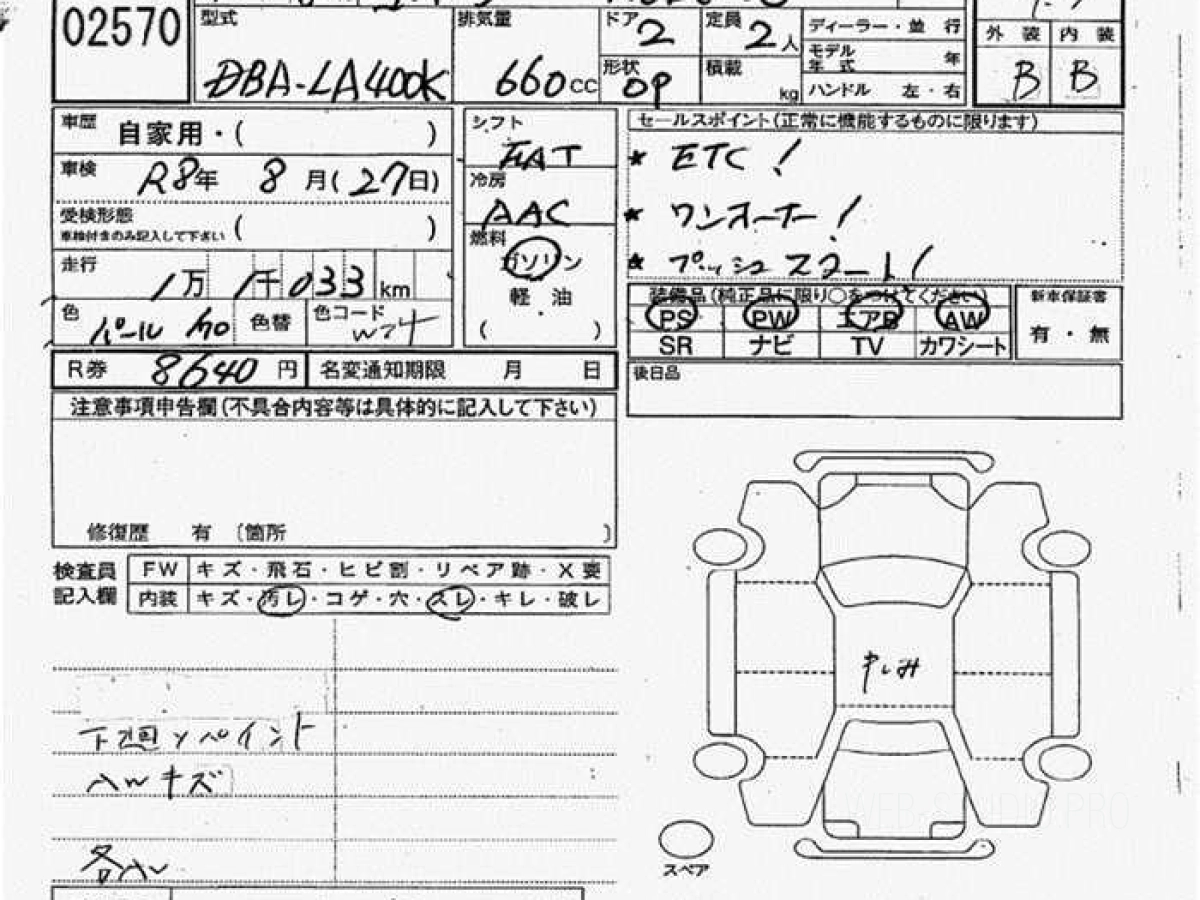 02570
型式 DBA-LA400K
排気量 660 cc
ドア 2
定員 2 人
形状 OP
積載 kg
ディーラー・並 行
モデル年式 年
ハンドル 左・右
外 装 内 装
B B
車歴 自家用・( )
車検 R8年 8 月(27日)
受検形態
車検付きのみ記入して下さい ( )
走行 1万 1千033 km
色 パール 色替 色コード W24
シフト FAT
冷房 AAC
燃料
ガソリン
軽 油
( )
セールスポイント(正常に機能するものに限ります)
* ETC!
* ワンオーナー!
* プッシュスタート!
装備品(純正品に限り○をつけてください)
PS PW エアB AW
SR ナビ TV カワシート
新車保証書
有・無
R券 8640 円 名変通知期限 月 日
後日品
注意事項申告欄(不具合内容等は具体的に記入して下さい)
修復歴 有 〔箇所 〕
検査員 FW キズ・飛石・ヒビ割・リペア跡・X要
記入欄 内装 キズ・汚レ・コゲ・穴・スレ・キレ・破レ
下廻 ペイント
AWキズ
スペア
WEB-STUDIO.PRO